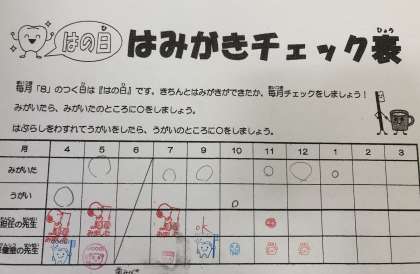 はの日
はみがきチェック表
毎月「8」のつく日は『はの日』です。きちんとはみがきができたか、毎月チェックをしましょう！
みがいたら、みがいたのところに○をしましょう。
はぶらしをわすれてうがいをしたら、うがいのところに○をしましょう。
月 4 5 6 7 8 9 10 11 12 1 2 3
みがいた
うがい
担任の先生
の先生